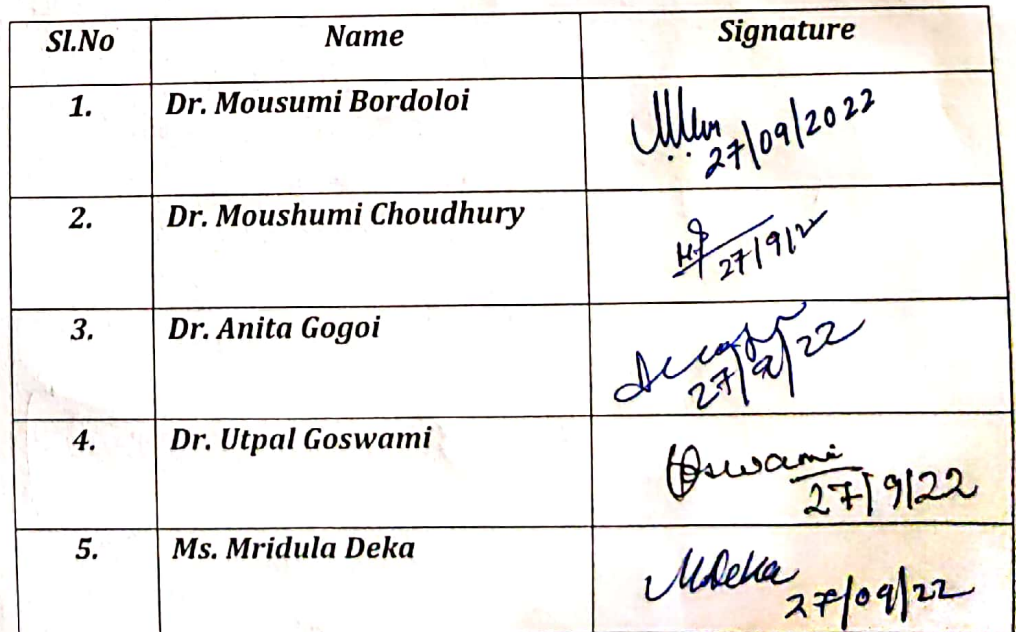 Sl.No Name Signature
1. Dr. Mousumi Bordoloi
27/09/2022
2. Dr. Moushumi Choudhury
27/9/2
3. Dr. Anita Gogoi
27/9/22
4. Dr. Utpal Goswami Goswami
27/9/22
5. Ms. Mridula Deka MDeka
27/09/22